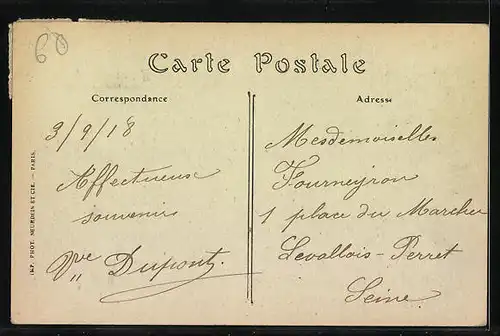 60
Carte Postale
Correspondance
Adresse
3/9/18
Affectueux
souvenir
Vve Dupont.
Mesdemoiselles
Fourneyron
1 place du Marcher
Levallois-Perret
Seine.
IMP. PHOT. NEURDEIN ET CIE. — PARIS.